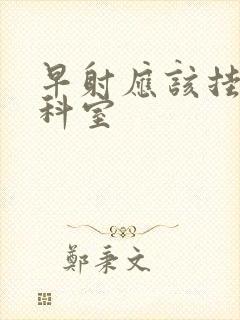 早射應該挂
科室
鄭秉文